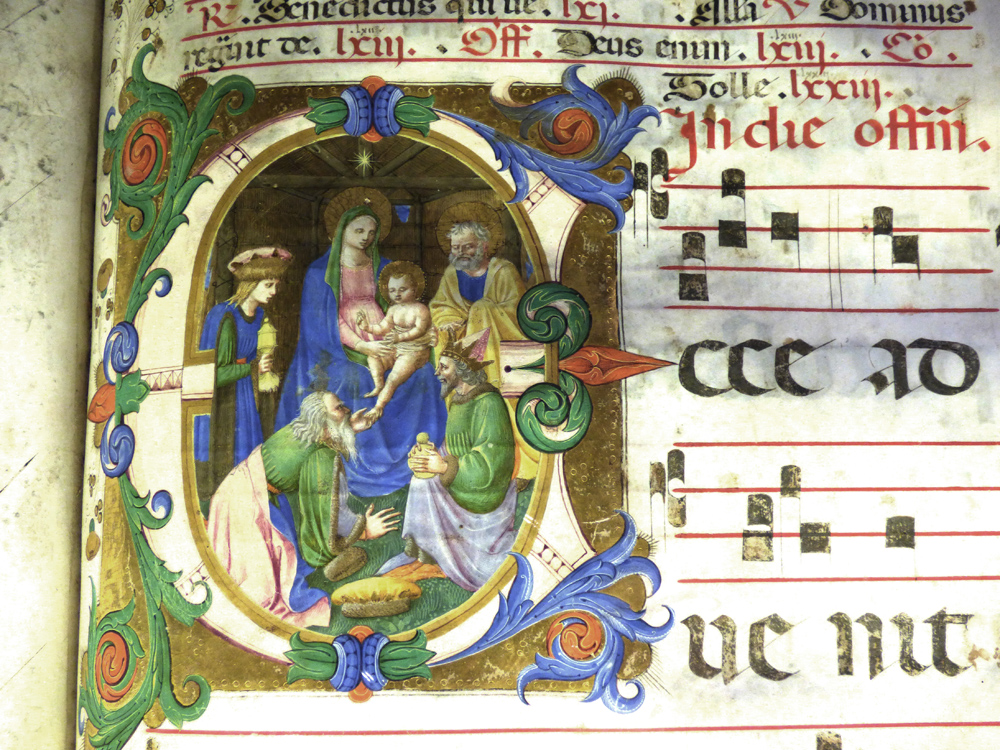 R. Benedictus qui ue. lxi. . Alla V Dominus
regñit de. lxiij. . Off. Deus enim. lxiij. . Cõ.
Tolle .lxxiij.
In die offim.
Ecce ad
ue nit